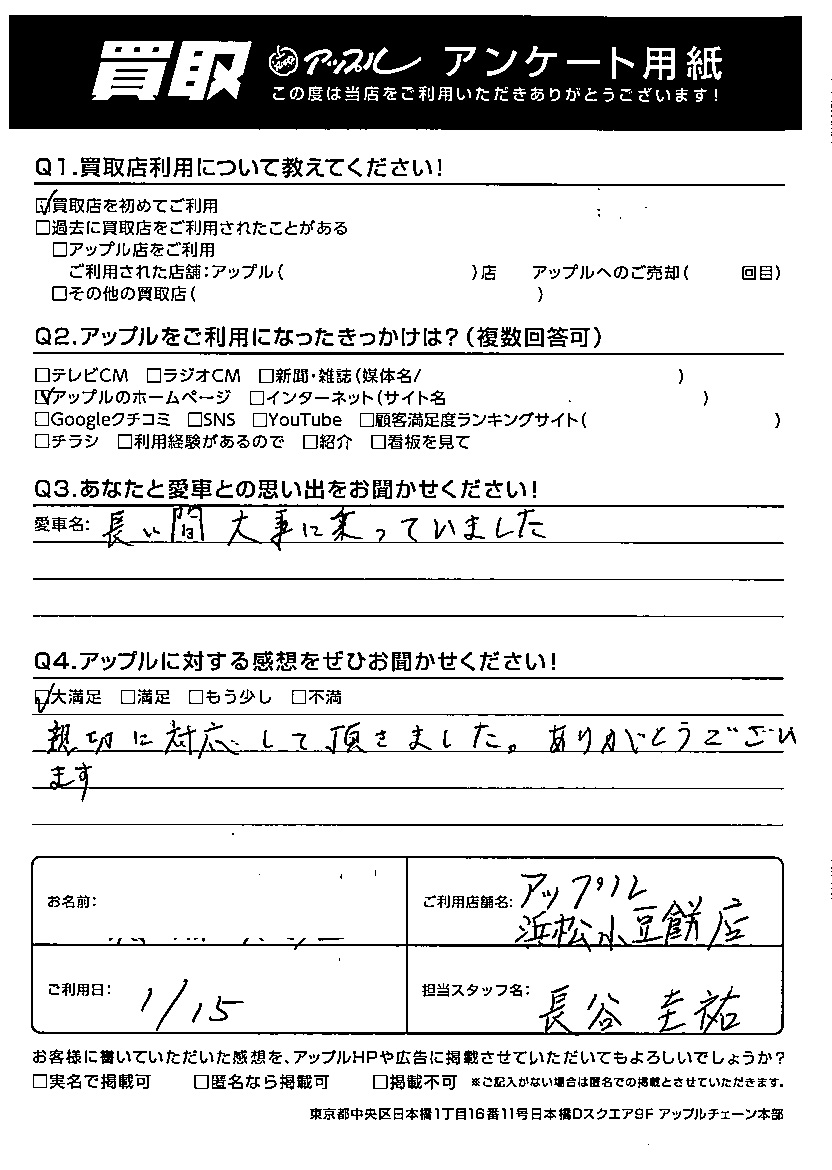 買取 アップル アンケート用紙
この度は当店をご利用いただきありがとうございます!
Q1.買取店利用について教えてください!
☑買取店を初めてご利用
□過去に買取店をご利用されたことがある
□アップル店をご利用
ご利用された店舗:アップル( )店 アップルへのご売却( 回目)
□その他の買取店( )
Q2.アップルをご利用になったきっかけは?(複数回答可)
□テレビCM □ラジオCM □新聞・雑誌(媒体名/ )
☑アップルのホームページ □インターネット(サイト名 )
□Googleクチコミ □SNS □YouTube □顧客満足度ランキングサイト( )
□チラシ □利用経験があるので □紹介 □看板を見て
Q3.あなたと愛車との思い出をお聞かせください!
愛車名: 長い間 大事に乗っていました
Q4.アップルに対する感想をぜひお聞かせください!
☑大満足 □満足 □もう少し □不満
親切に対応して頂きました。ありがとうござい
ます
お名前:
ご利用店舗名: アップル
浜松小豆餅店
ご利用日: 1/15
担当スタッフ名: 長谷 圭祐
お客様に書いていただいた感想を、アップルHPや広告に掲載させていただいてもよろしいでしょうか?
□実名で掲載可 □匿名なら掲載可 □掲載不可 ※ご記入がない場合は匿名での掲載とさせていただきます。
東京都中央区日本橋1丁目16番11号日本橋Dスクエア9F アップルチェーン本部